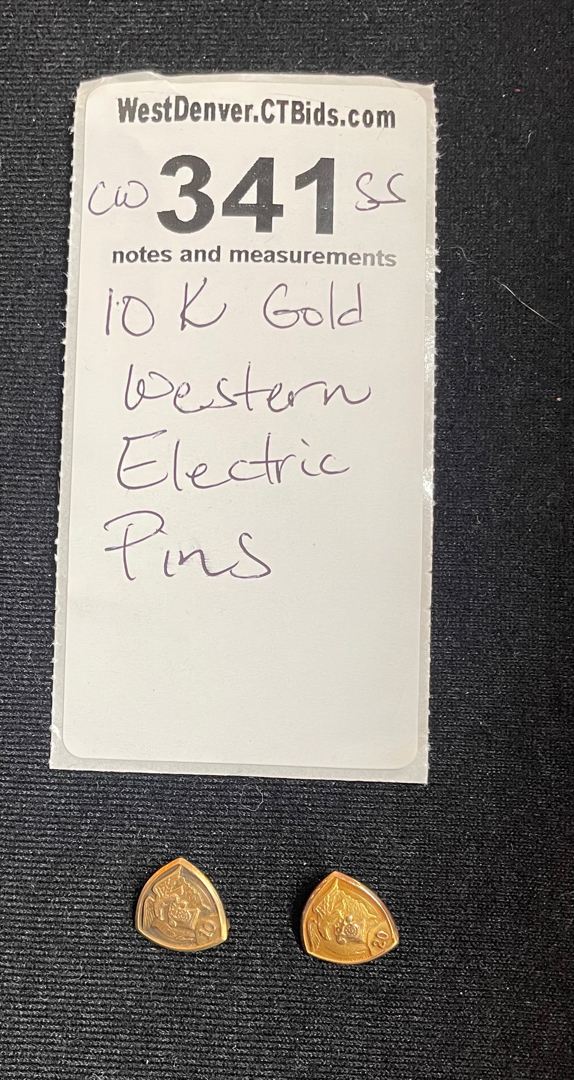 WestDenver.CTBids.com
CW 341 SS
notes and measurements
10 K Gold
Western
Electric
Pins
20
20